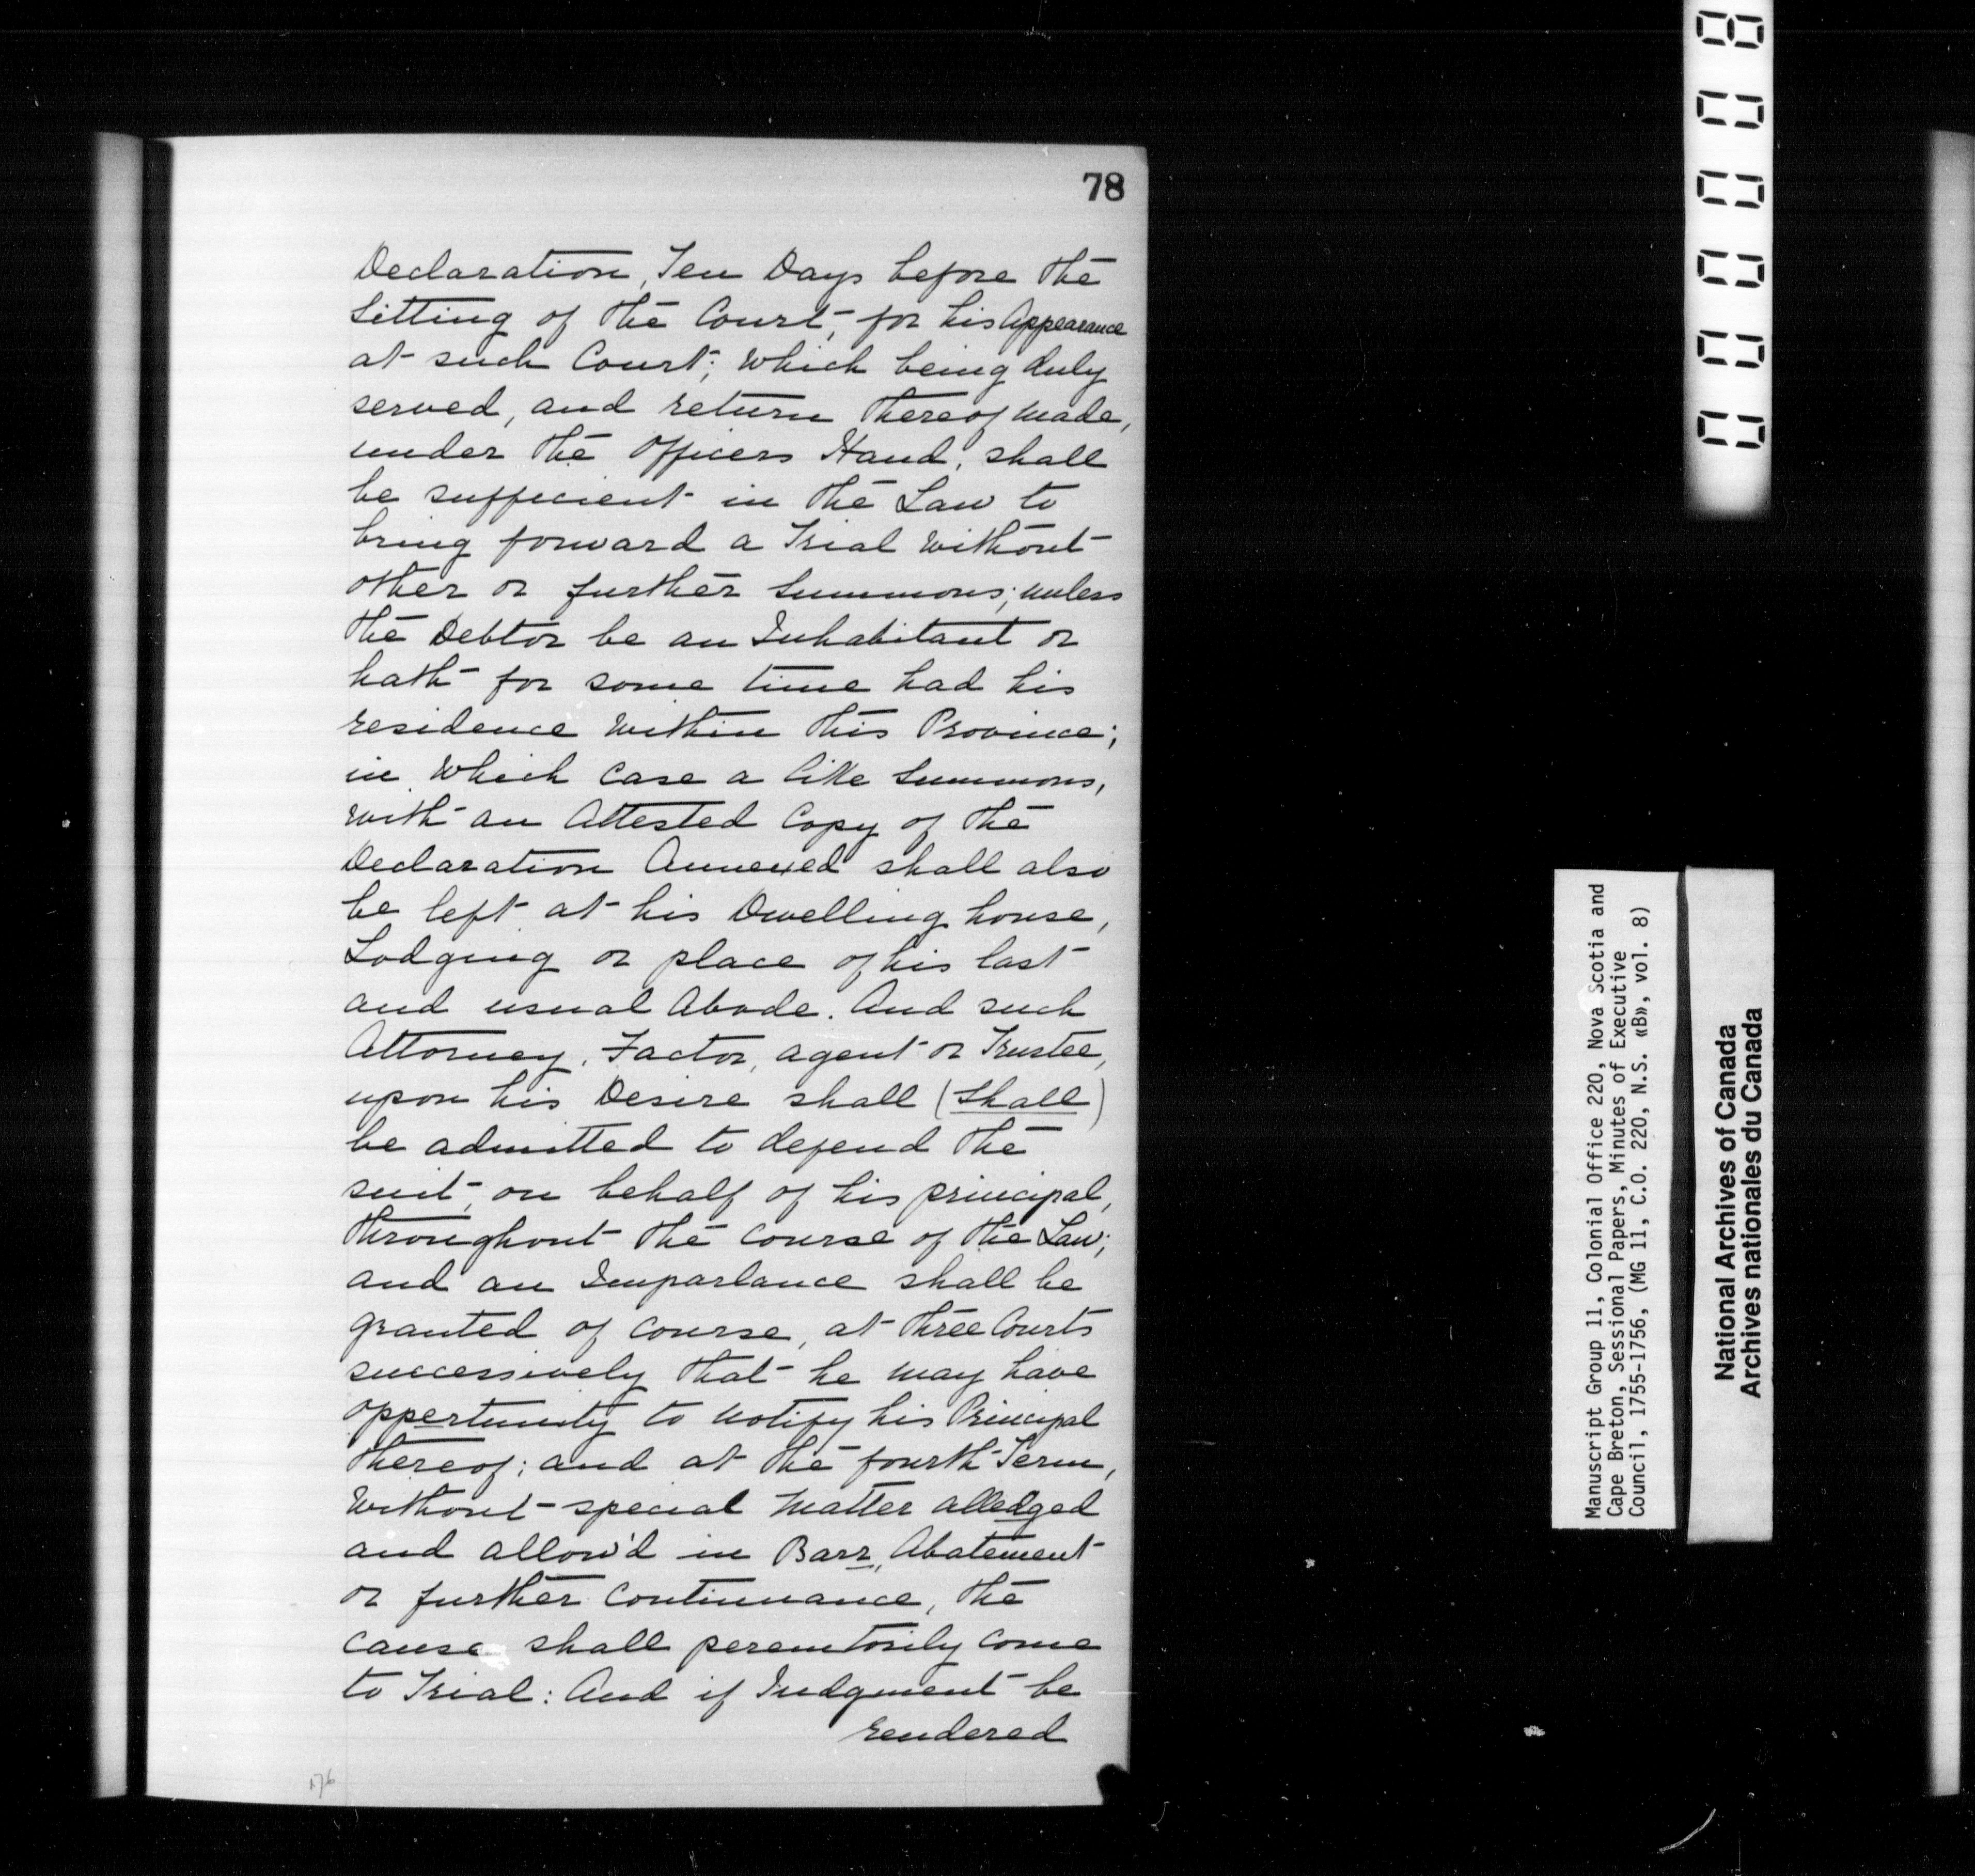 78
Declaration, Ten Days before the
Sitting of the Court, for his Appearance
at such Court; which being duly
served, and return thereof made,
under the Officers Hand, shall
be sufficient in the Law to
bring forward a Trial without
other or further Summons; unless
the Debtor be an Inhabitant or
hath for some time had his
residence within this Province;
in which case a like Summons,
with an Attested Copy of the
Declaration Annexed shall also
be left at his Dwelling house,
Lodging or place of his last
and usual Abode. And such
Attorney, Factor, agent or Trustee,
upon his Desire shall (Shall)
be admitted to defend the
suit, on behalf of his principal,
throughout the course of the Law;
and an Imparlance shall be
granted of course, at three Courts
successively that he may have
oppertunity to notify his Principal
thereof; and at the fourth Term,
without special Matter alledged
and allow'd in Barr, Abatement
or further Continuance, the
cause shall peremtorily come
to Trial: And if Judgment be
rendered
176
000008
Manuscript Group 11, Colonial Office 220, Nova Scotia and
Cape Breton, Sessional Papers, Minutes of Executive
Council, 1755-1756, (MG 11, C.O. 220, N.S. «B», vol. 8)
National Archives of Canada
Archives nationales du Canada